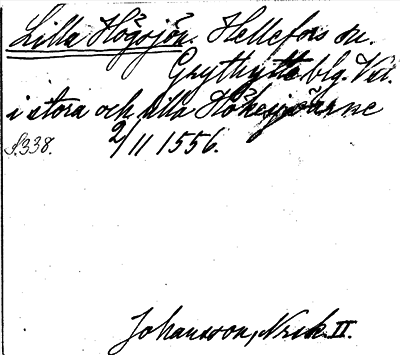 Lilla Högsjön. Hellefors sn.
Grythytte blg. Vstl.
i stora och lilla Hökesjöarne
S.338. 2/11 1556.
Johansson, Nrik. II.